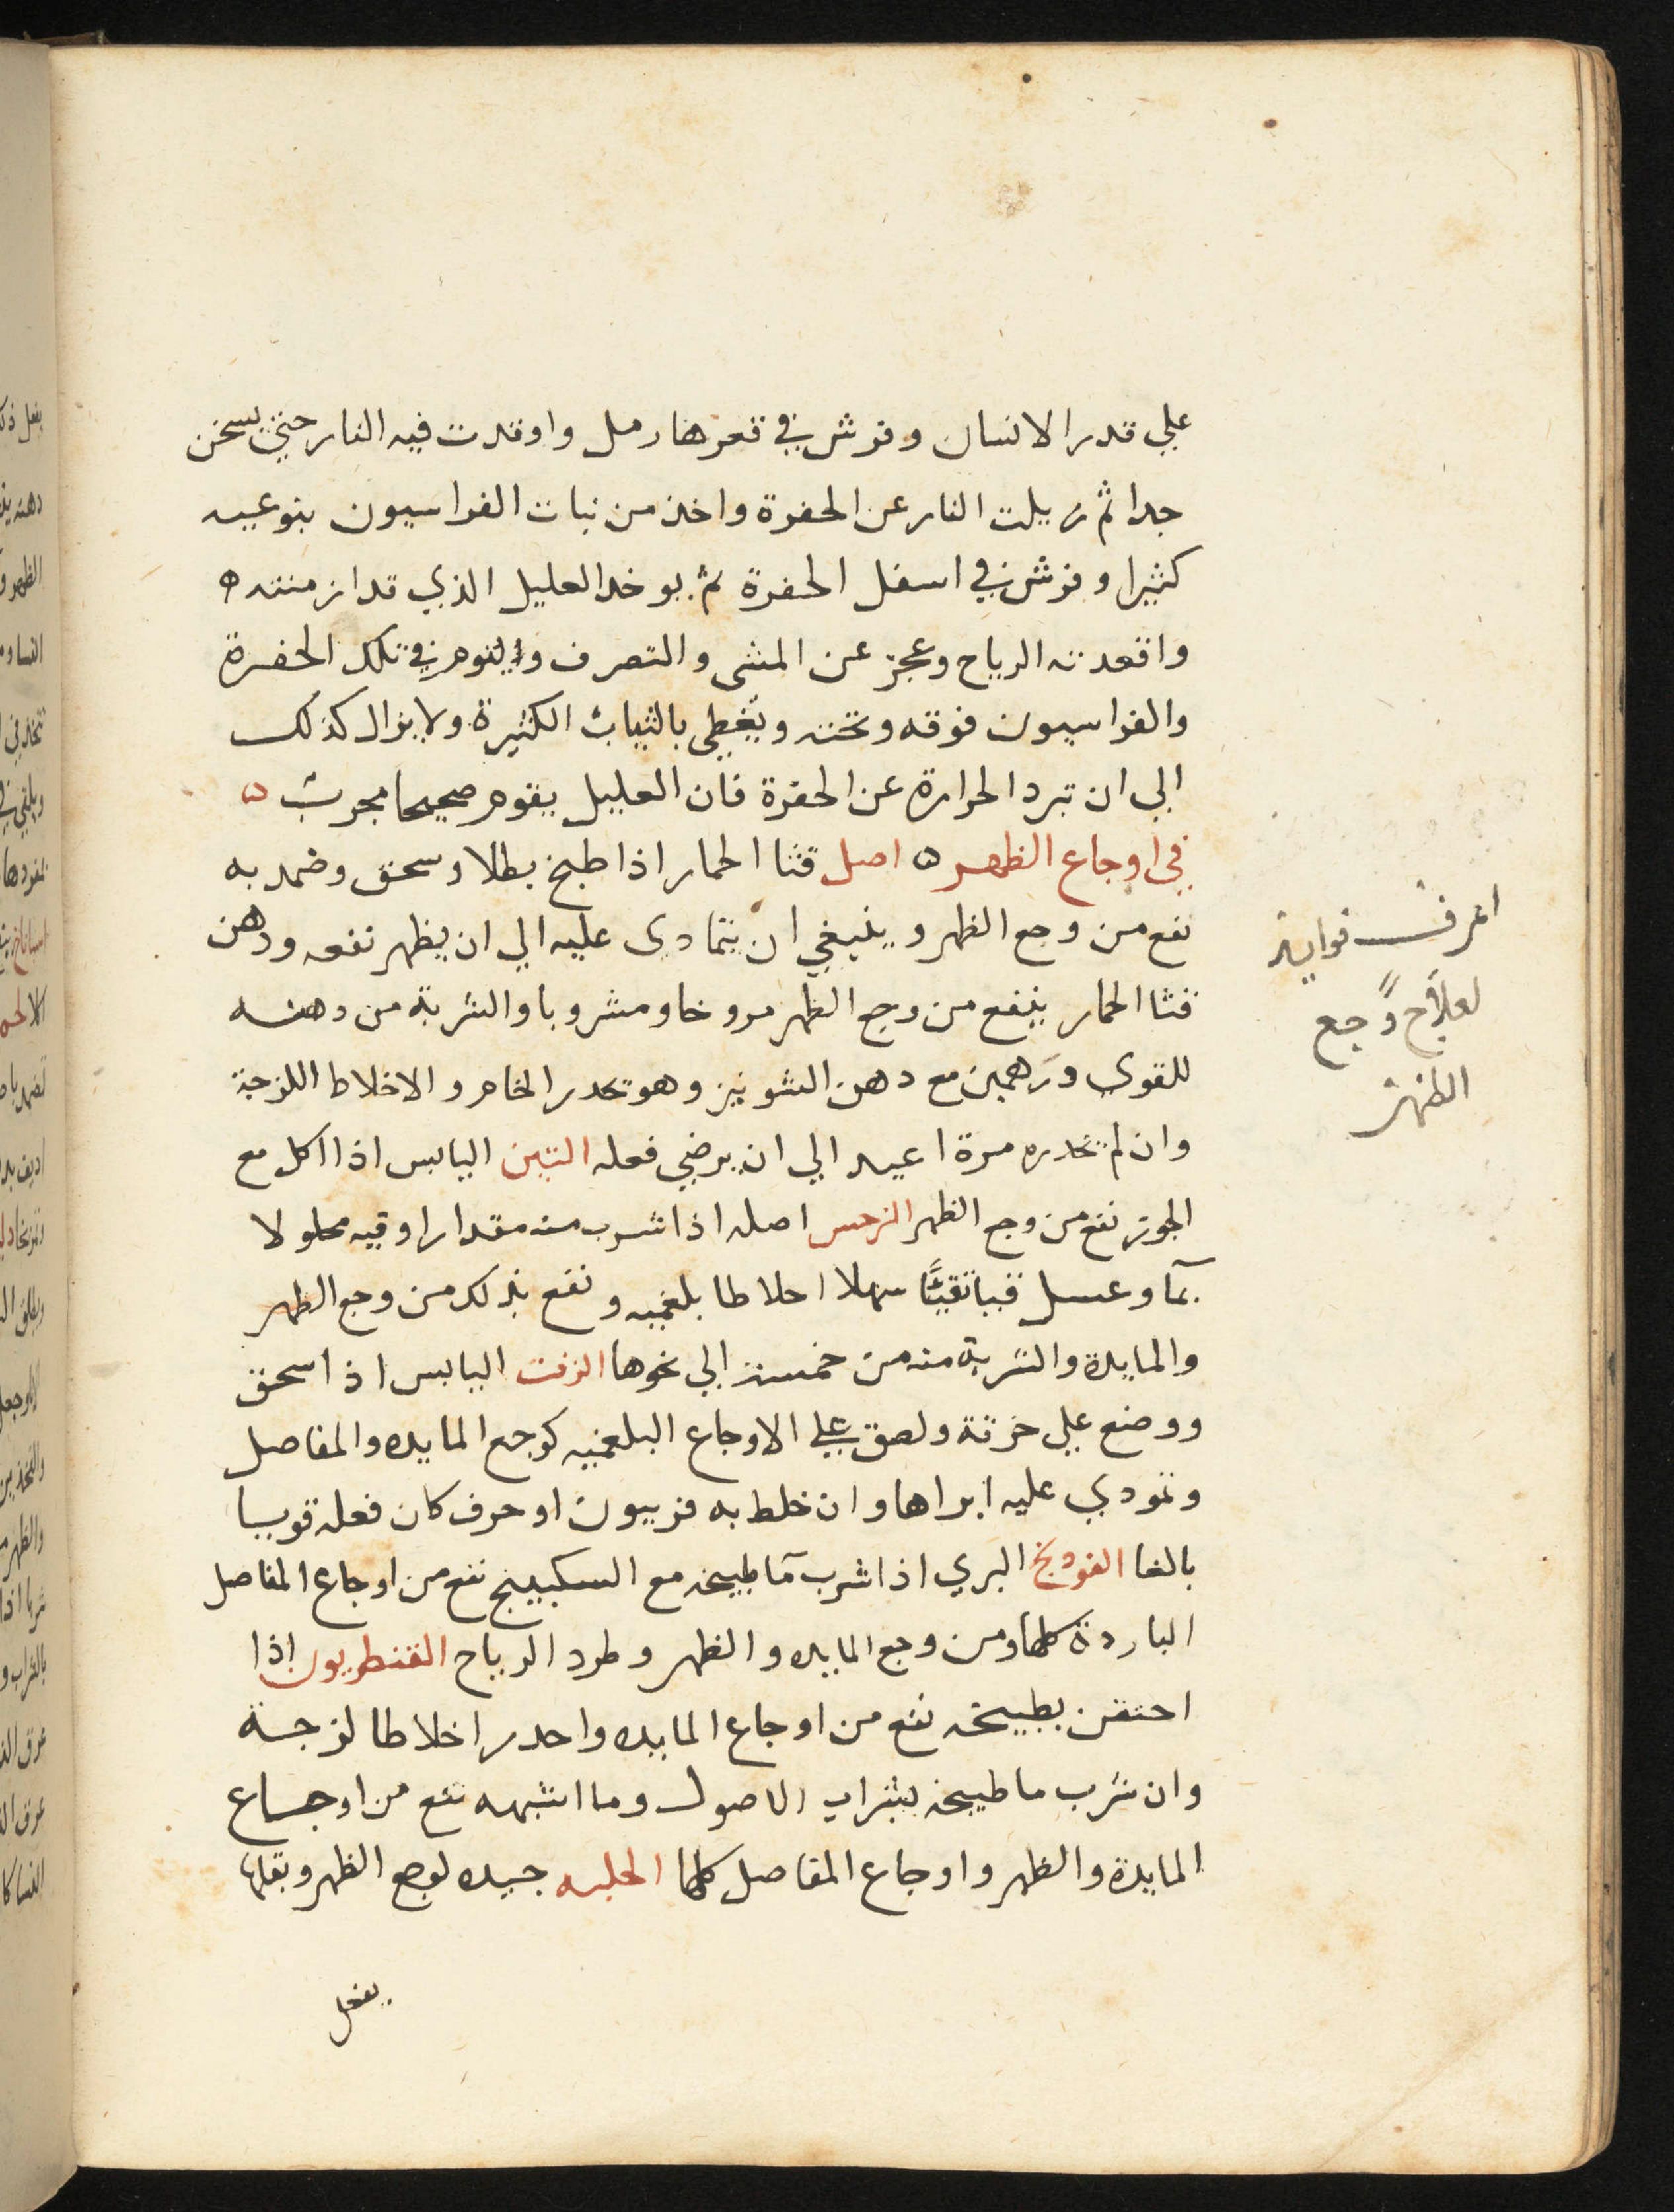 علي قدر الانسان وفرش في قعرها رمل واوقدت فيه النار حتي يسخن
جدا ثم زيلت النار عن الحفرة واخذ من نبات الفراسيون بنوعيه
كثيرا وفرش في اسفل الحفرة ثم يوخد العليل الذي قد ازمنته
واقعدته الرياح وعجز عن المشى والتصرف ولينوم في تلك الحفرة
والفراسيون فوقه وتحته ويغطي بالثياب الكثيرة ولا يزال كذلك
الي ان تبرد الحرارة عن الحفرة فان العليل يقوم صحيحا مجرب ه
في اوجاع الظهر ه اصل قثا الحمار اذا طبخ بطلا وسحق وضمد به
نفع من وجع الظهر وينبغي ان يتمادى عليه الي ان يظهر نفعه ودهن
قثا الحمار ينفع من وجع الظهر مروخا ومشروبا والشربة من دهنه
للقوى درهمين مع دهن الشونيز وهو تحدر الخام والاخلاط اللزجة
وان لم تحدره مرة اعيد الي ان يرضي فعله التين اليابس اذا اكل مع
الجوز نفع من وجع الظهر النرجس اصله اذا شرب منه مقدار اوقيه محلولا
بمآ وعسل قيا تقيئًا سهلا احلاطا بلغميه ونفع بذلك من وجع الظهر
والمايدة والشربة منه من خمسة الي نحوها الزفت اليابس اذا سحق
ووضع علي خرقة ولصق علي الاوجاع البلغميه كوجع المايده والمفاصل
وتمودي عليه ابراها وان خلط به فربيون او حرف كان فعله قويا
بالغا الفودنج البري اذا شرب مآ طبيخه مع السكبينج نفع من اوجاع المفاصل
الباردة كلها ومن وجع المايده والظهر وطرد الرياح القنطريون اذا
احتقن بطبيخه نفع من اوجاع المايده واحدر اخلاطا لزجة
وان شرب ما طبيخه بشراب الاصول وما اشبهه نفع من اوجاع
المايدة والظهر واوجاع المفاصل كلها الحلبه جيده لوجع الظهر وبقلها
يفعل
اعرف فوايد
لعلاج وجع
الظهر